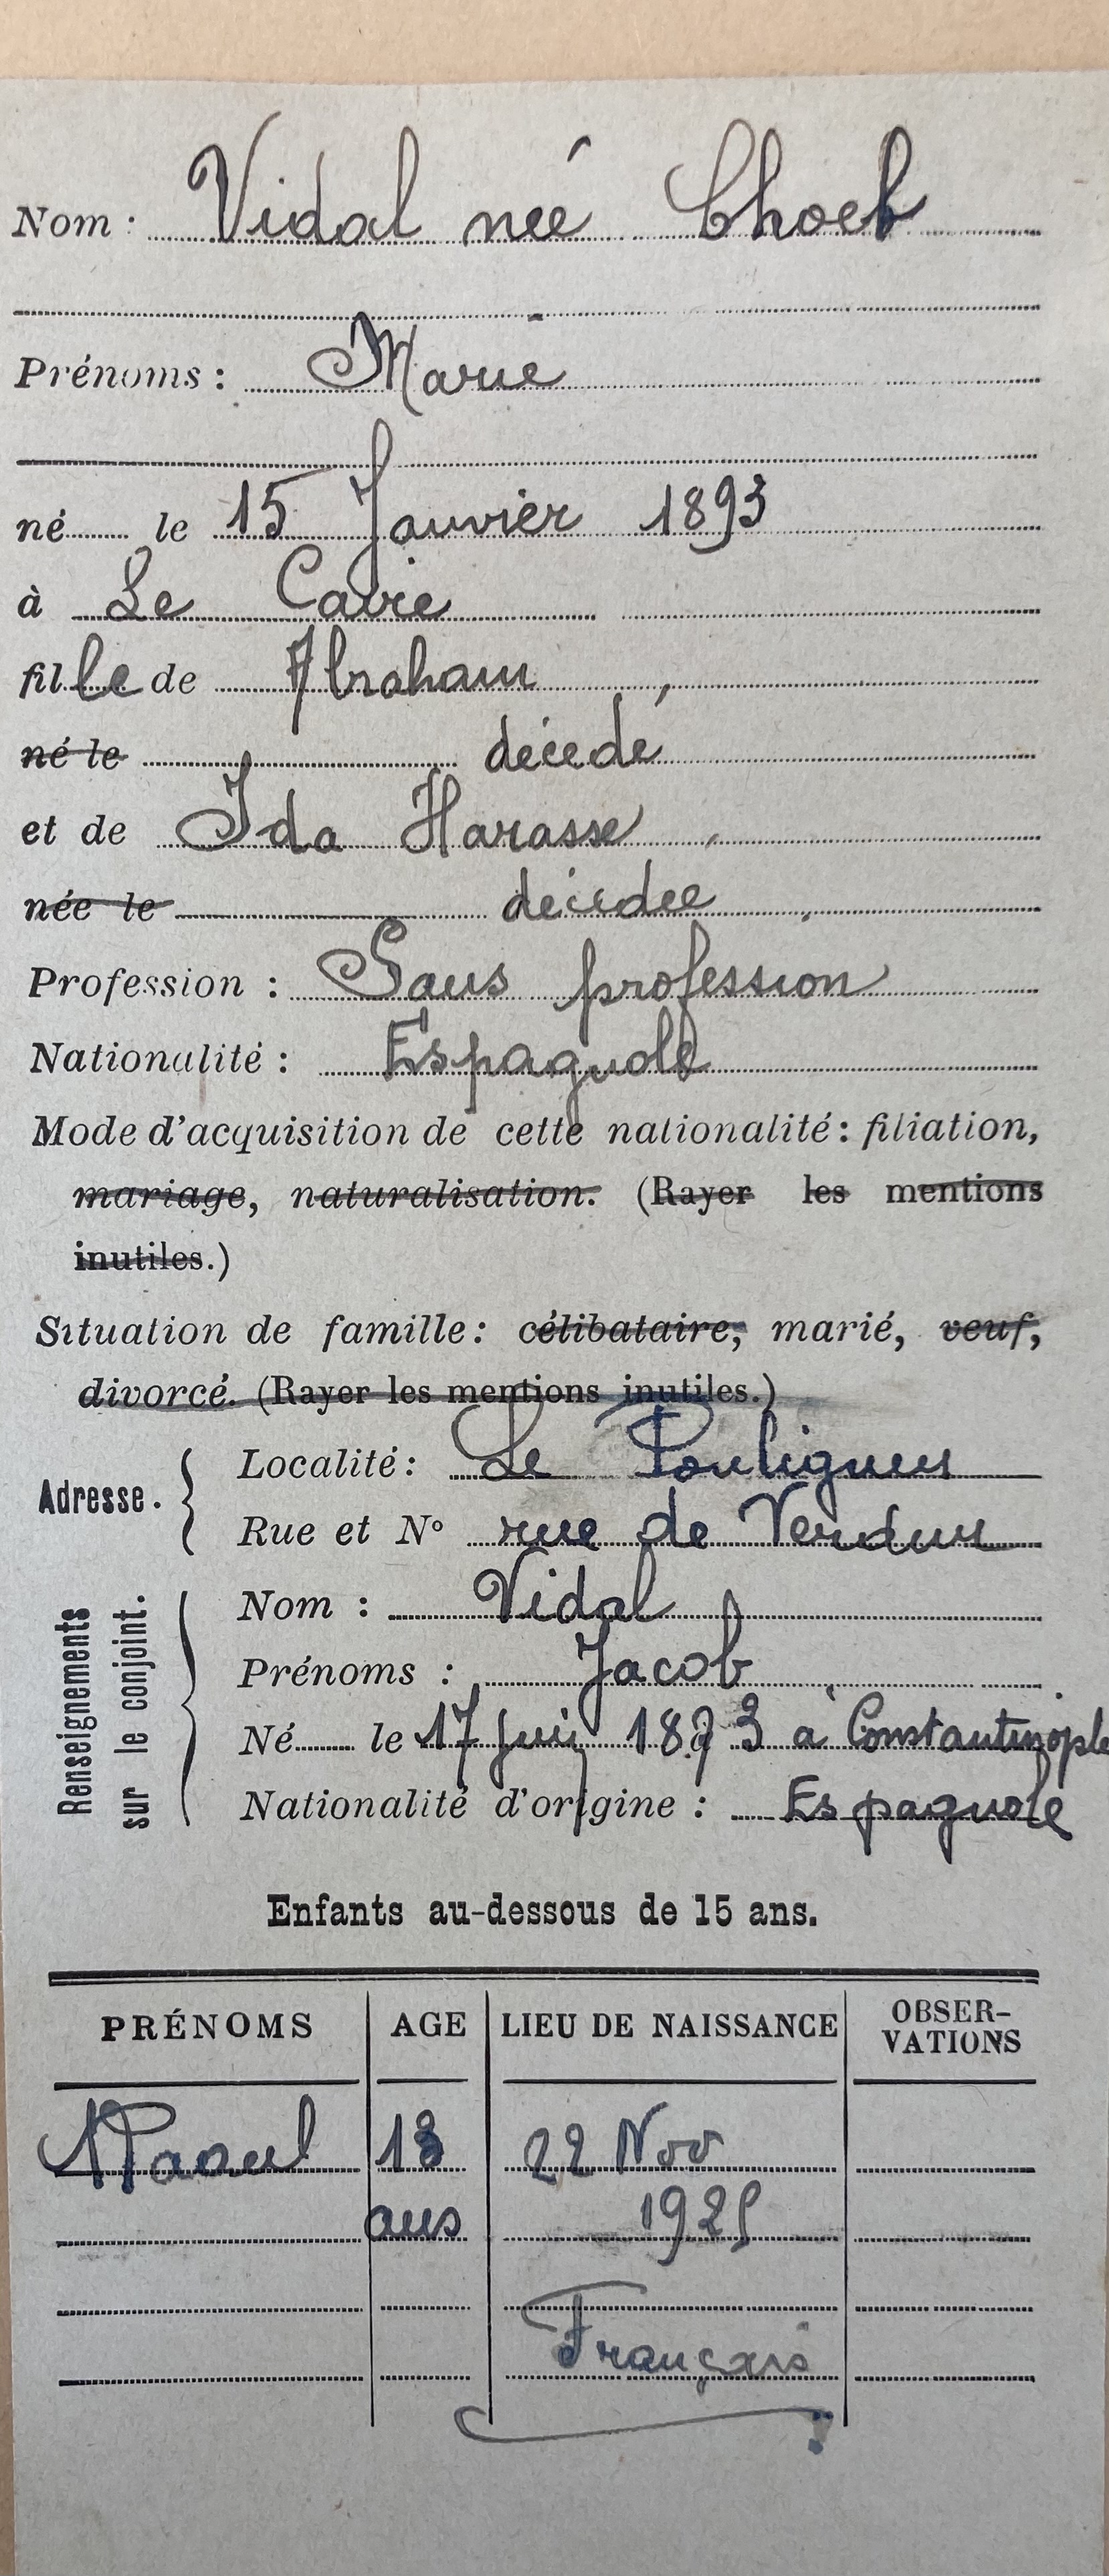 Nom : Vidal née Choeb
Prénoms : Marie
né le 15 Janvier 1893
à Le Caire
fille de Abraham,
né le décédé
et de Ida Harasse,
née le décédée,
Profession : Sans profession
Nationalité : Espagnole
Mode d'acquisition de cette nationalité : filiation,
mariage, naturalisation. (Rayer les mentions
inutiles.)
Situation de famille : célibataire, marié, veuf,
divorcé. (Rayer les mentions inutiles.)
Adresse. Localité : Le Pouliguen
Rue et No rue de Verdun
Renseignements sur le conjoint.
Nom : Vidal
Prénoms : Jacob
Né le 17 juin 1873 à Constantinople
Nationalité d'origine : Espagnole
Enfants au-dessous de 15 ans.
PRÉNOMS AGE LIEU DE NAISSANCE OBSER-
VATIONS
Raoul 13 22 Nov
ans 1925
Français